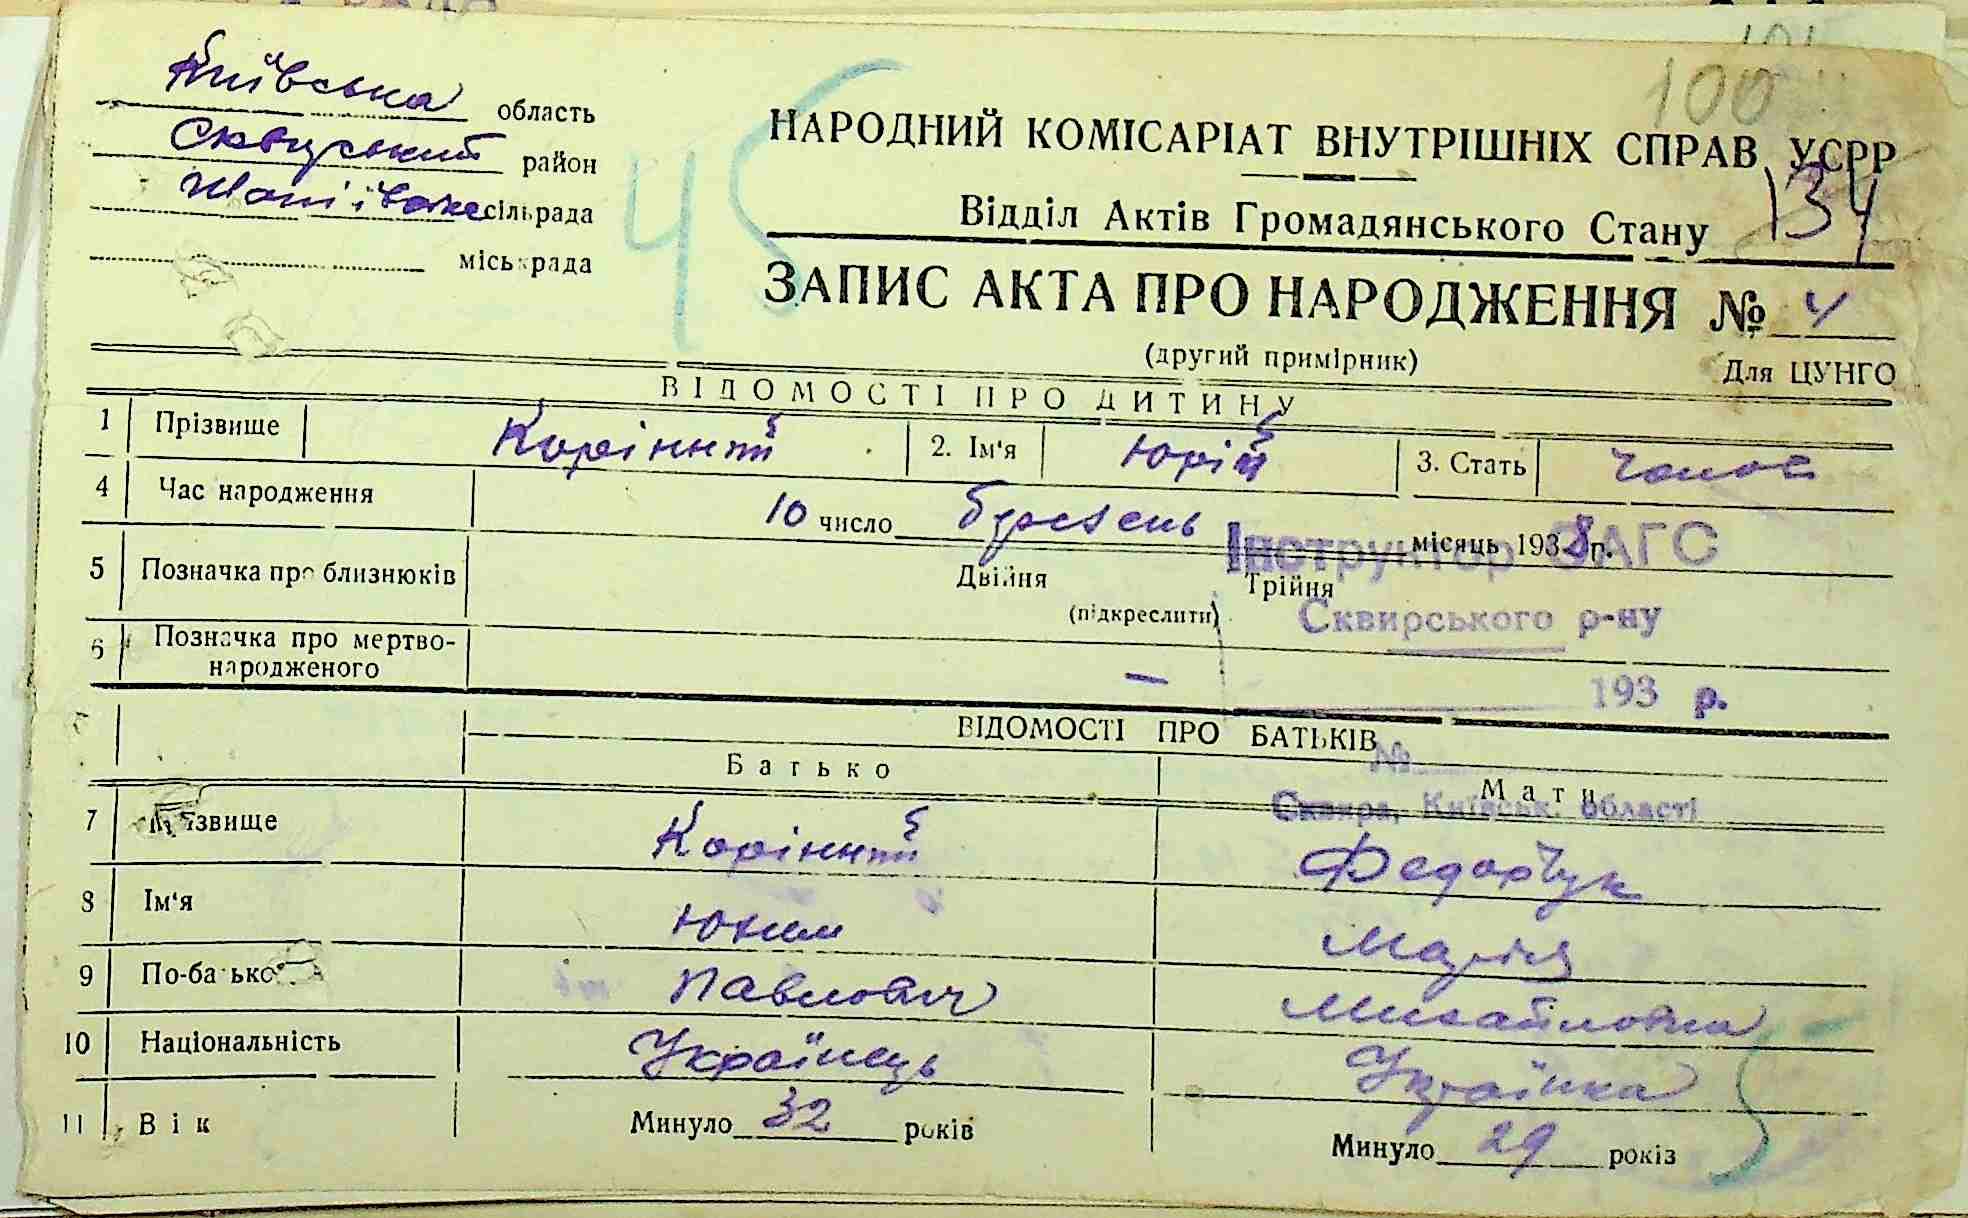 Київська область
Сквирський район
Шапіївська сільрада
міськрада
45
100
НАРОДНИЙ КОМІСАРІАТ ВНУТРІШНІХ СПРАВ УСРР
134
Відділ Актів Громадянського Стану
ЗАПИС АКТА ПРО НАРОДЖЕННЯ № 4
(другий примірник) Для ЦУНГО
ВІДОМОСТІ ПРО ДИТИНУ
1 Прізвище Корінний 2. Ім'я Юрій 3. Стать чолов
4 Час народження 10 число березень місяць 1938 р.
Інструктор ЗАГС
5 Позначка про близнюків Двійня Трійня
(підкреслити)
Сквирського р-ну
6 Позначка про мертво-
народженого —
193 р.
ВІДОМОСТІ ПРО БАТЬКІВ
№
Батько Мати
Сквира, Київськ. області
7 Прізвище Корінний Федорчук
8 Ім'я Юхим Марія
9 По-батькові Павлович Михайловна
10 Національність Українець Українка
11 Вік Минуло 32 років Минуло 29 років